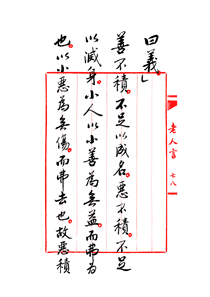 曰義」
善不積。不足以成名。惡不積。不足
以滅身。小人以小善為無益。而弗為
也。以小惡為無傷。而弗去也。故惡積
老人言 七八